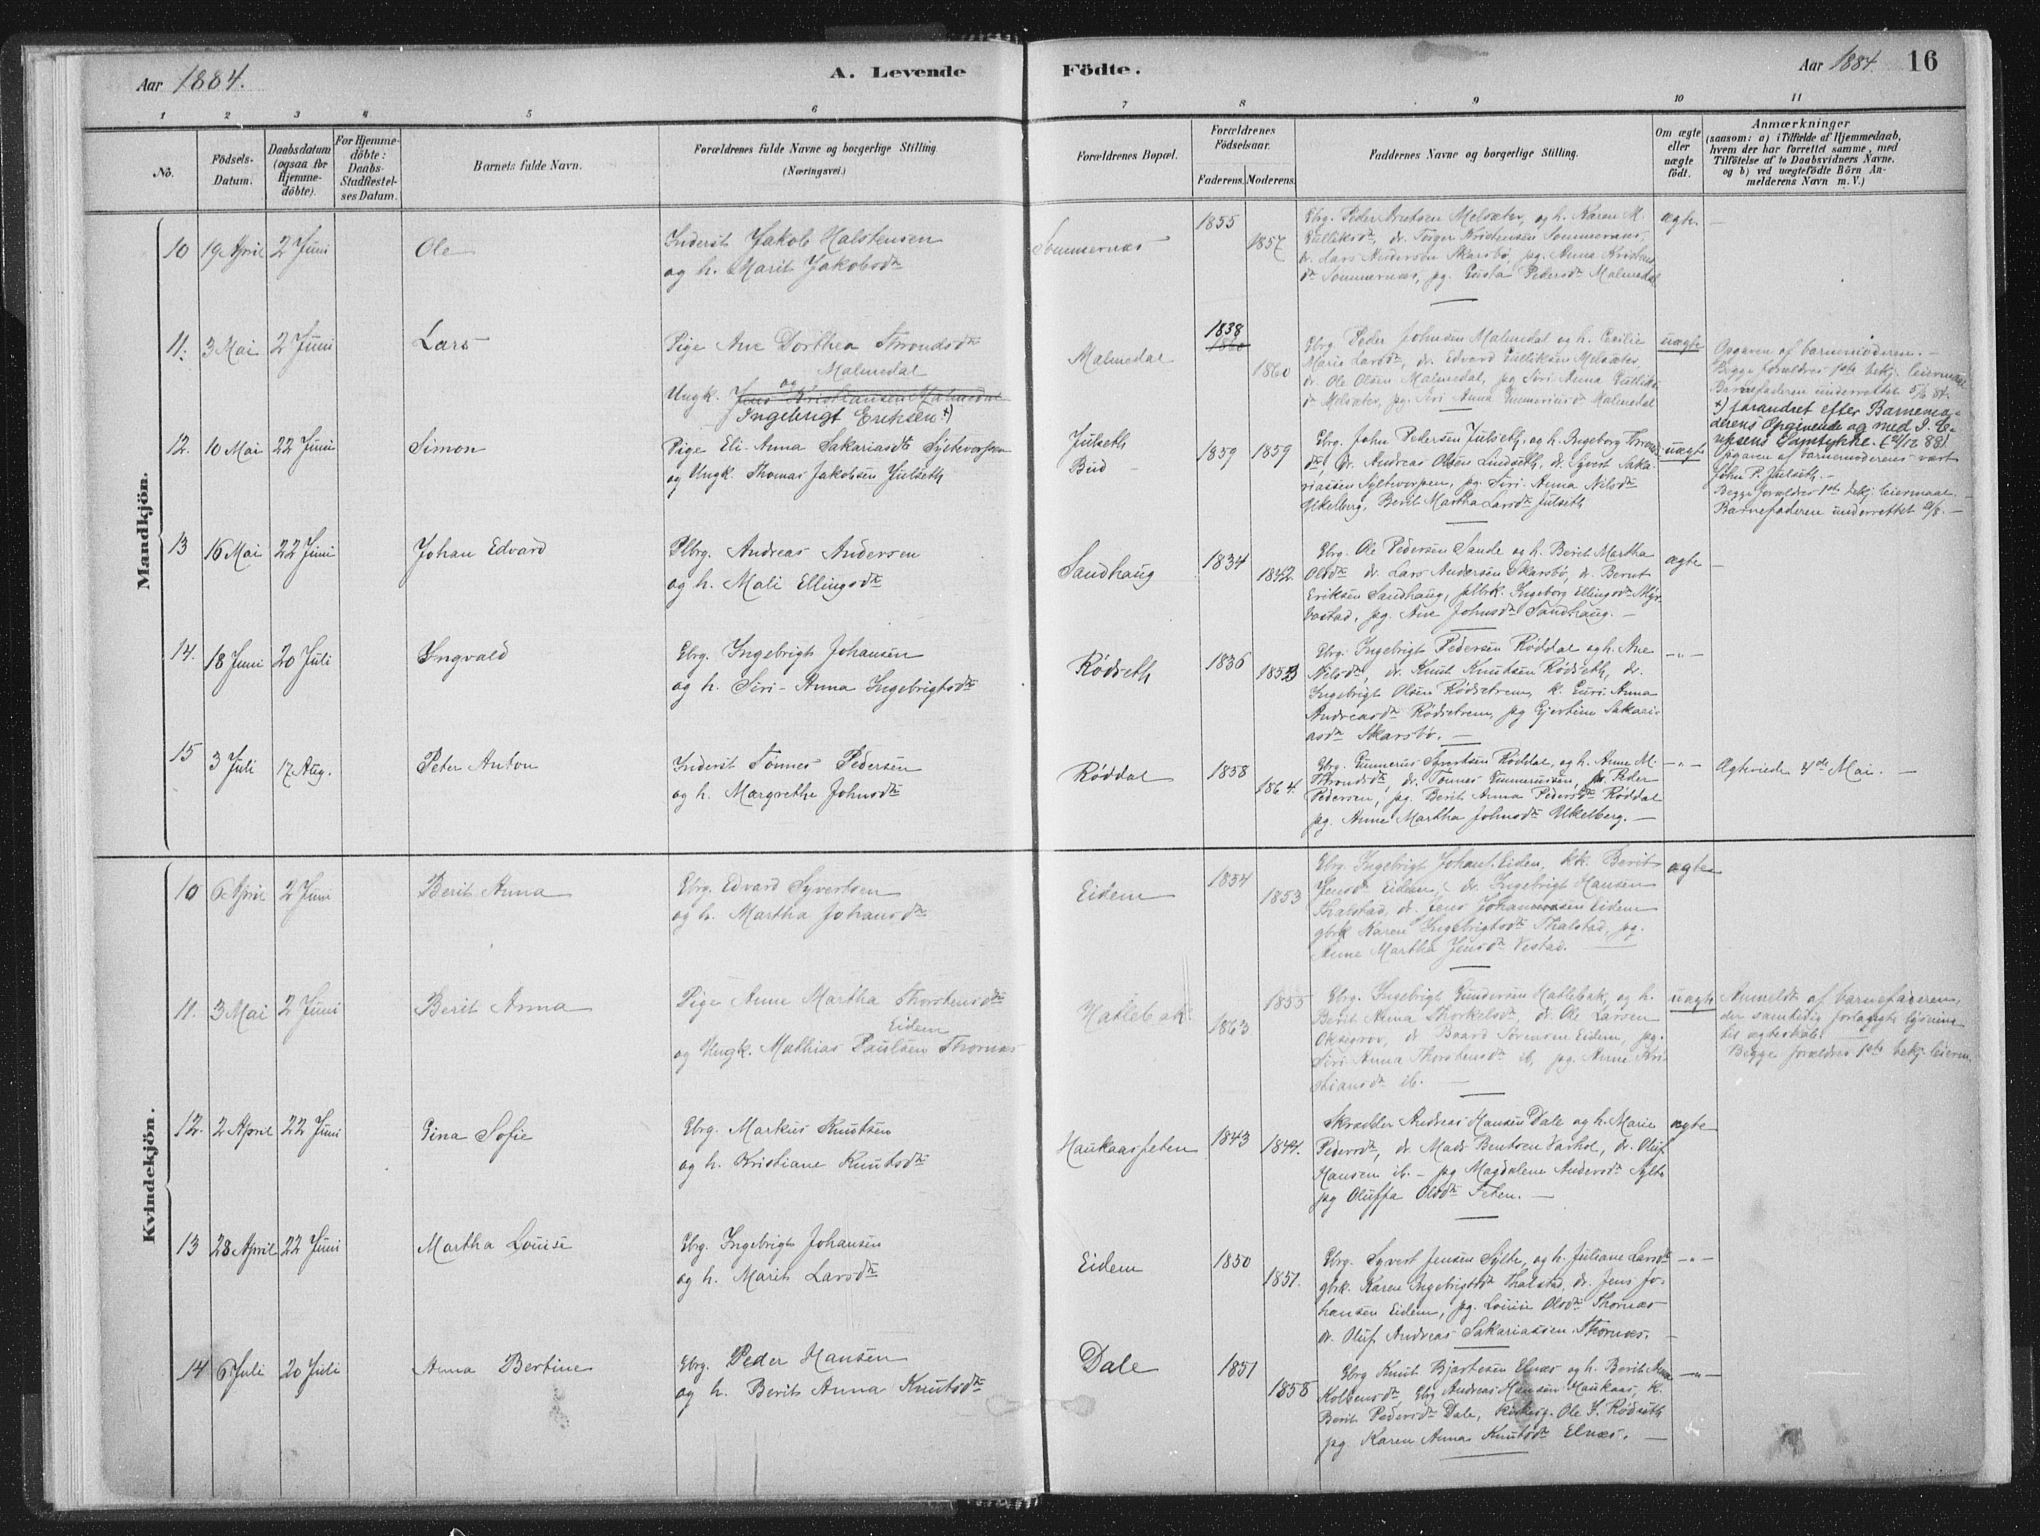 Aar 1884.
A. Levende
Födte.
Aar 1884.
16
1 2 3 4 5 6 7 8 9 10 11
No.
Födsels-
Datum.
Daabsdatum
(ogsaa for
Hjemme-
döbte).
For Hjemme-
döbte:
Daabs-
Stadfæstel-
ses Datum.
Barnets fulde Navn.
Forældrenes fulde Navne og borgerlige Stilling
(Næringsvei.)
Forældrenes Bopæl.
Forældrenes
Födselsaar.
Faderens.
Moderens.
Faddernes Navne og borgerlige Stilling.
Om ægte
eller
uægte
födt.
Anmærkninger
(saasom: a) i Tilfælde af Hjemmedaab,
hvem der har forrettet samme, med
Tilföielse af to Daabsvidners Navne.
og b) ved uægtefödte Börn An-
melderens Navn m. V.)
Mandkjön.
10 19 April 2 Juni
Ole
Inderst Jakob Halstensen
og h. Marit Jakobsdtr
Sommernæs
1855
1857
Gbrg. Peder Knutsen Melsæter, og h. Karen M.
Gulliksdr, dr. Torger Kristensen Sommernæs,
dr. Lars Andersen Skarsbø, pg. Anna Kristens
dr Sommernæs, pg. Gusta Pedersdr Malmedal
ægte
11. 3 Mai 2 Juni
Lars
Pige Ane Dorthea Throndsdtr
Malmedal
og
Ungk. Jens Kristiansen Malmedal
Ingebrigt Eriksen +)
Malmedal
1838
1860
1860
Gbrg. Peder Johnsen Malmedal og h. Cecilie
Marie Larsdr, dr. Edvard Gulliksen Melsæter
dr. Ole Olsen Malmedal, pg Siri Anna Gulliks
dr Melsæter, pg. Siri Anna Gunneriusdr Malmedal
uægte
Opgaven af barnemoderen. –
Begge forældres 1ste bekj. leiermaal
Barnefaderen underrettet 5/6 84.
+) forandret efter Barnemo-
derens Opgivende og med I. E-
riksens Samtykke.
12. 10 Mai 22 Juni
Simon
Pige Eli-Anna Sakariasdtr Syltevorpen
og Ungk. Thomas Jakobsen Julseth
Julseth
Bud
1859
1859
Gbrg. John Pedersen Julseth, og h. Ingeborg Thronds
dr, dr. Andreas Olsen Lindseth, dr. Syvert Saka-
riassen Syltevorpen, pg. Siri Anna Nilsdr
Ukelberg, Berit Martha Larsdr Julseth
uægte
Opgaven af barnemoderens vært
John P. Julseth. –
Begge forældres 1ste bekj. leiermaal. –
Barnefaderen underrettet
13 16 Mai 22 Juni
Johan Edvard
Plbrg. Andreas Andersen
og h. Mali Ellingsdtr
Sandhaug
1834
1842.
Gbrg. Ole Pedersen Sande og h. Berit Martha
Olsdtr dr. Lars Andersen Skarsbø, dr. Bernt
Eriksen Sandhaug, plbrk. Ingeborg Ellingsdr Myr-
bostad, pg. Ane Johnsdr Sandhaug. –
ægte
14. 18 Juni 20 Juli
Ingvald
Gbrg. Ingebrigt Johansen
og h. Siri-Anna Ingebrigtsdtr
Rødseth
1836
1853
Gbrg. Ingebrigt Pedersen Røddal og h. Ane
Nilsdr, dr. Knut Knutsen Rødseth, dr.
Ingebrigt Olsen Rødsetrem, k. Guri Anna
Andreasdr Rødsetrem, pg Gjertine Sakari-
asdr Skarsbø. –
– " –
15 3 Juli 17. Aug.
Peter Anton
Inderst Tønnes Pedersen
og h. Margrethe Johnsdtr
Røddal
1858
1864.
Gbrg. Gunnerus Syvertsen Røddal, og h. Anne M.
Throndsdr, dr. Tønnes Gunnerussen, dr. Peder
Pedersen, pg. Berit Anna Pedersdr Røddal
pg. Anne Martha Johnsdr Ukelberg. –
– " –
Ægteviede 4de Mai. –
Kvindekjön.
10 6 April 2 Juni
Berit Anna
Gbrg. Edvard Syvertsen
og h. Martha Johansdtr
Eidem
1854
1853
Gbrg. Ingebrigt Johans. Eiden, kk. Berit
Jensdr Eidem, dr. Ingebrigt Hansen
Thalstad, dr. Jens Johannessen Eidem
gbrk Karen Ingebrigtsdr Thalstad, pg.
Anne Martha Jensdr Vestad.
ægte
11. 3 Mai 2 Juni
Berit Anna
Pige Anne Martha Thorstensdtr
Eidem
og Ungk. Mathias Paulsen Thornæs
Hatlebak
1863
1855
Gbrg. Ingebrigt Gundersen Hatlebak, og h.
Berit Anna Thorkelsdr, dr. Ole Larsen
dr Baard Sørensen Eidem, pg.
Siri Anna Thorstensdr ib, pg. Anne Kri-
stiansdr ib. –
uægte
Anmeldt af barnefaderen,
der samtidig forlangte lysning
til ægteskab.
Begge forældres 1ste bekj. leierm.
12. 2 April 22 Juni
Gina Sofie
Gbrg. Markus Knutsen
og h. Kristiane Knutsdtr
Haukaasfeten
1843
1844.
Skrædder Andreas Hansen Dale og h. Marie
Pedersdr, dr. Mads Bentsen Varhol, dr. Oluf
Hansen ib. – pg Magdalene Andersdr Sylte
pg Oluffa Olsdr Feten. –
ægte
13 28 April 22 Juni
Martha Louise
Gbrg. Ingebrigt Johansen
og h. Marit Larsdtr
Eidem
1850
1851.
Gbrg. Syvert Jensen Sylte, og h. Juliane Larsdr
gbrk. Karen Ingebrigtsdr Thalstad, dr. Jens Jo-
hansen Eidem, pg. Louise Olsdr Thornæs
dr. Oluf Andreas Sakariassen Thornæs.
– " –
14 6 Juli 20 Juli
Anna Bertine
Gbrg. Peder Hansen
og h. Berit Anna Knutsdtr
Dale
1851
1858
Gbrg Knut Bjartesen Elnæs og h. Berit Anna
Kolbensdr Gbrg Andreas Hansen Haukaas, k.
Berit Pedersdr Dale, Ole S. Rødseth
pg Karen Anna Knutsdr Elnæs. –
– " –